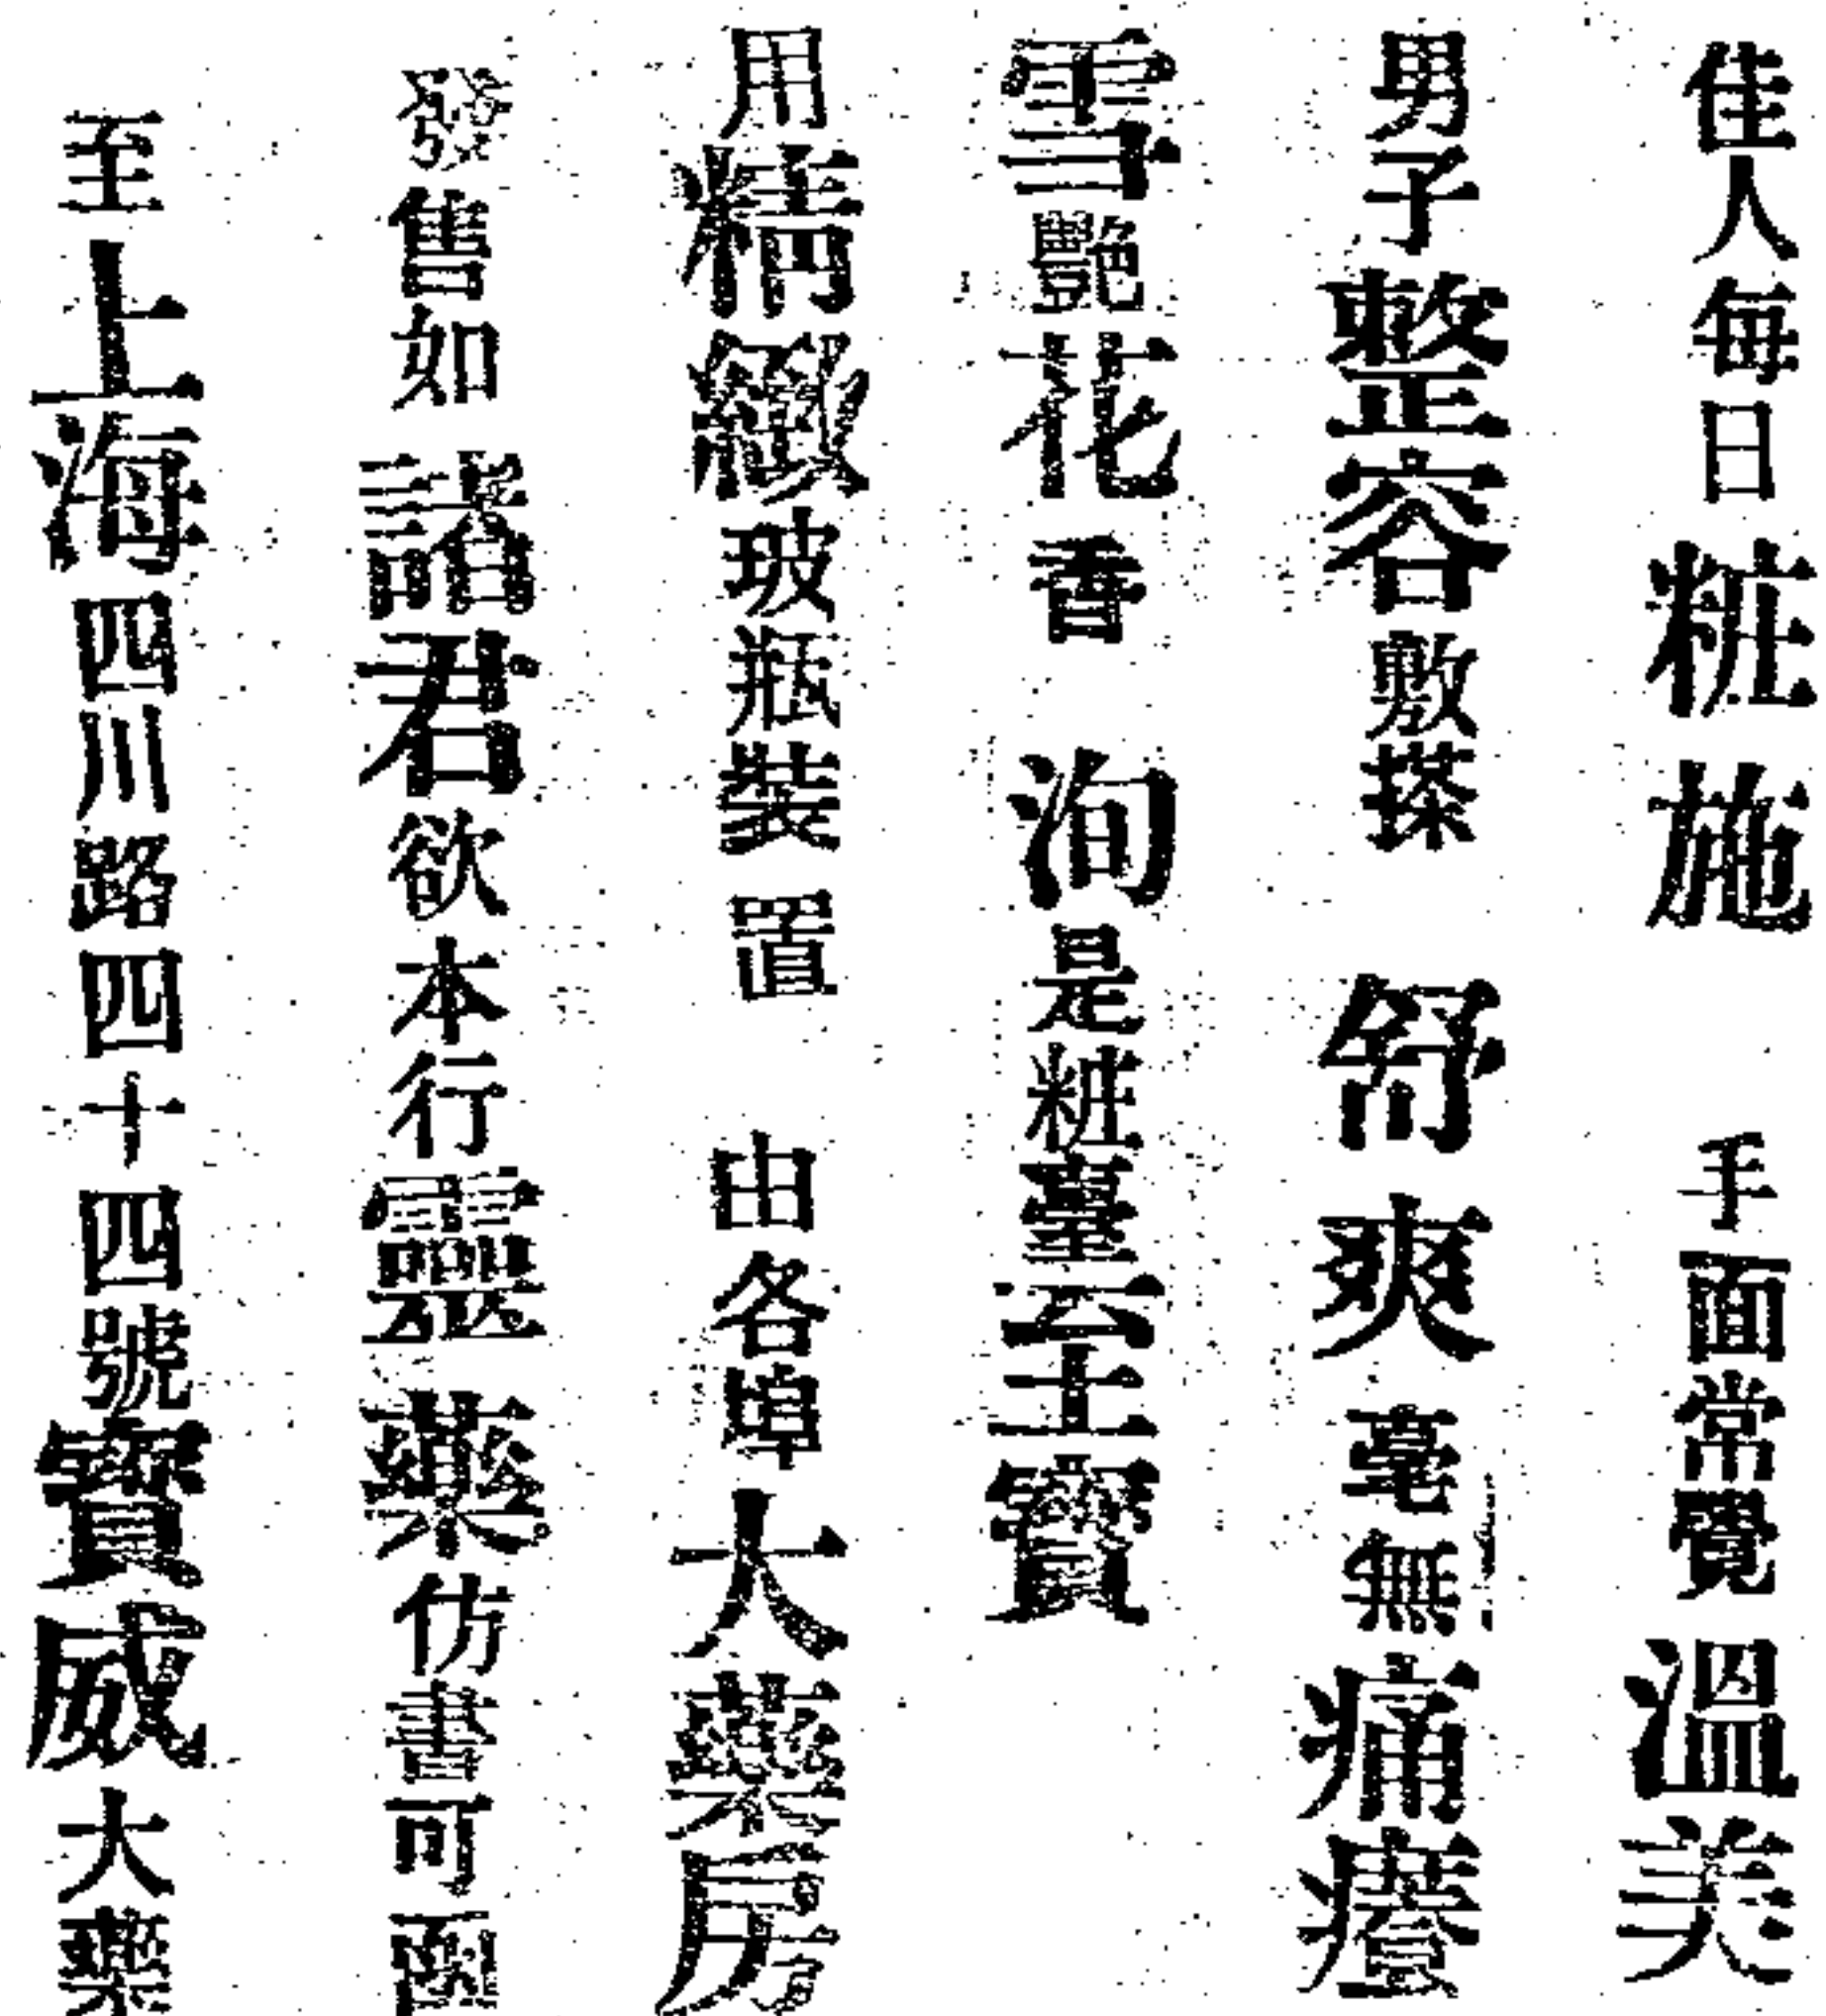 佳人每日粧施 手面常覺溫美
男子整容敷搽 舒爽毫無痛癢
雪艷花香 洵是粧臺至寶
用精緻玻瓶裝置 由各埠大藥房
發售如諸君欲本行靈藥仿書可函
至上海四川路四十四號寶威大藥